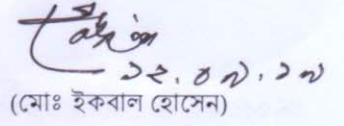 ১২.০৭.১৭
(মোঃ ইকবাল হোসেন)